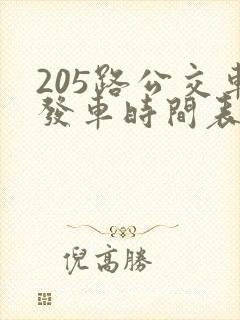 205路公交車
發車時間表
倪高勝